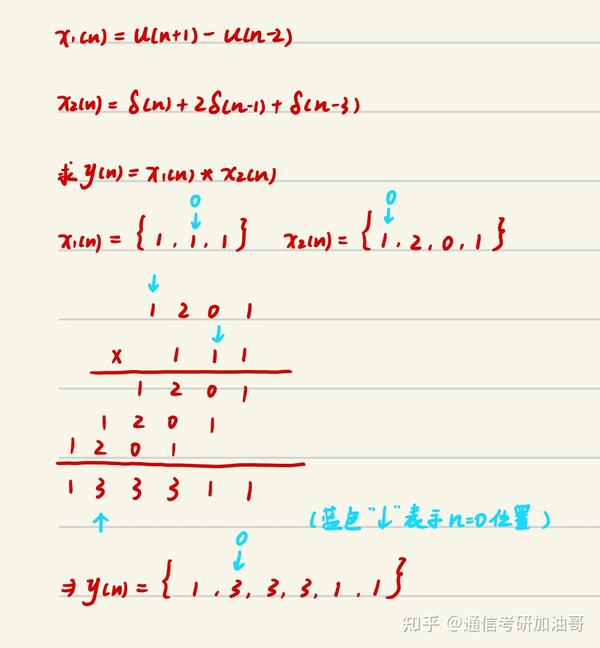 x₁(n) = u(n+1) - u(n-2)
x₂(n) = δ(n) + 2δ(n-1) + δ(n-3)
求 y(n) = x₁(n) * x₂(n)
0 0
↓ ↓
x₁(n) = { 1 , 1 , 1 } x₂(n) = { 1 , 2 , 0 , 1 }
↓
1 2 0 1
↓
x 1 1 1
1 2 0 1
1 2 0 1
1 2 0 1
1 3 3 3 1 1
↑ (蓝色"↓"表示n=0位置)
0
↓
⇒ y(n) = { 1 , 3 , 3 , 3 , 1 , 1 }
知乎 @通信考研加油哥